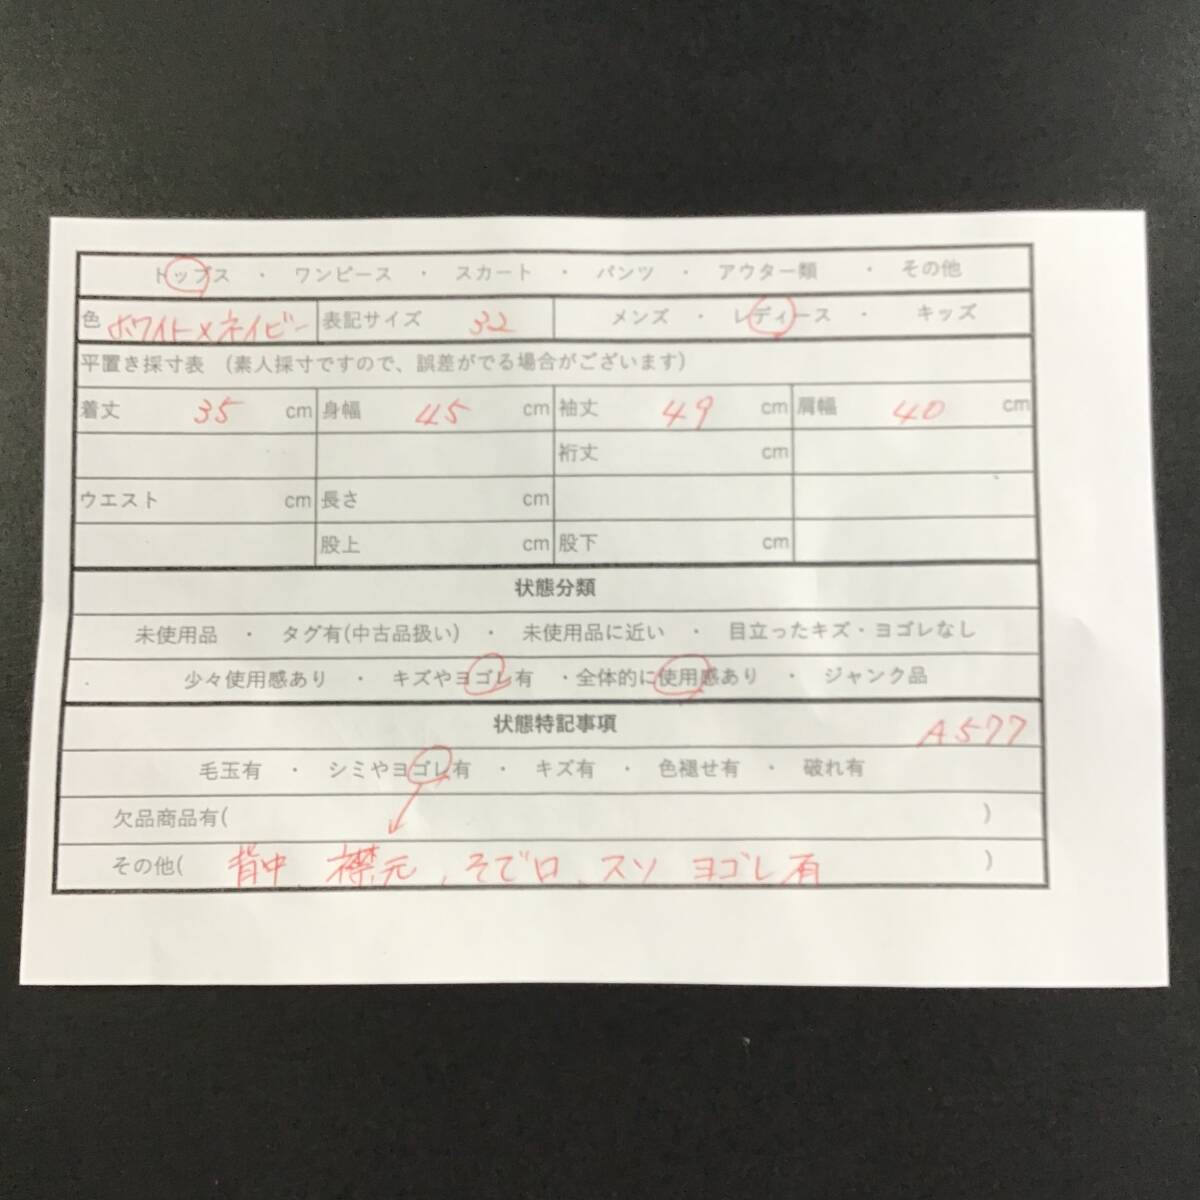 トップス ・ ワンピース ・ スカート ・ パンツ ・ アウター類 ・ その他
色 ホワイト×ネイビー 表記サイズ 32 メンズ ・ レディース ・ キッズ
平置き採寸表 (素人採寸ですので、誤差がでる場合がございます)
着丈 35 cm 身幅 45 cm 袖丈 49 cm 肩幅 40 cm
裄丈 cm
ウエスト cm 長さ cm
股上 cm 股下 cm
状態分類
未使用品 ・ タグ有(中古品扱い) ・ 未使用品に近い ・ 目立ったキズ・ヨゴレなし
少々使用感あり ・ キズやヨゴレ有 ・全体的に使用感あり ・ ジャンク品
状態特記事項 A577
毛玉有 ・ シミやヨゴレ有 ・ キズ有 ・ 色褪せ有 ・ 破れ有
欠品商品有( )
その他( 背中、襟元、そで口、スソ ヨゴレ有 )